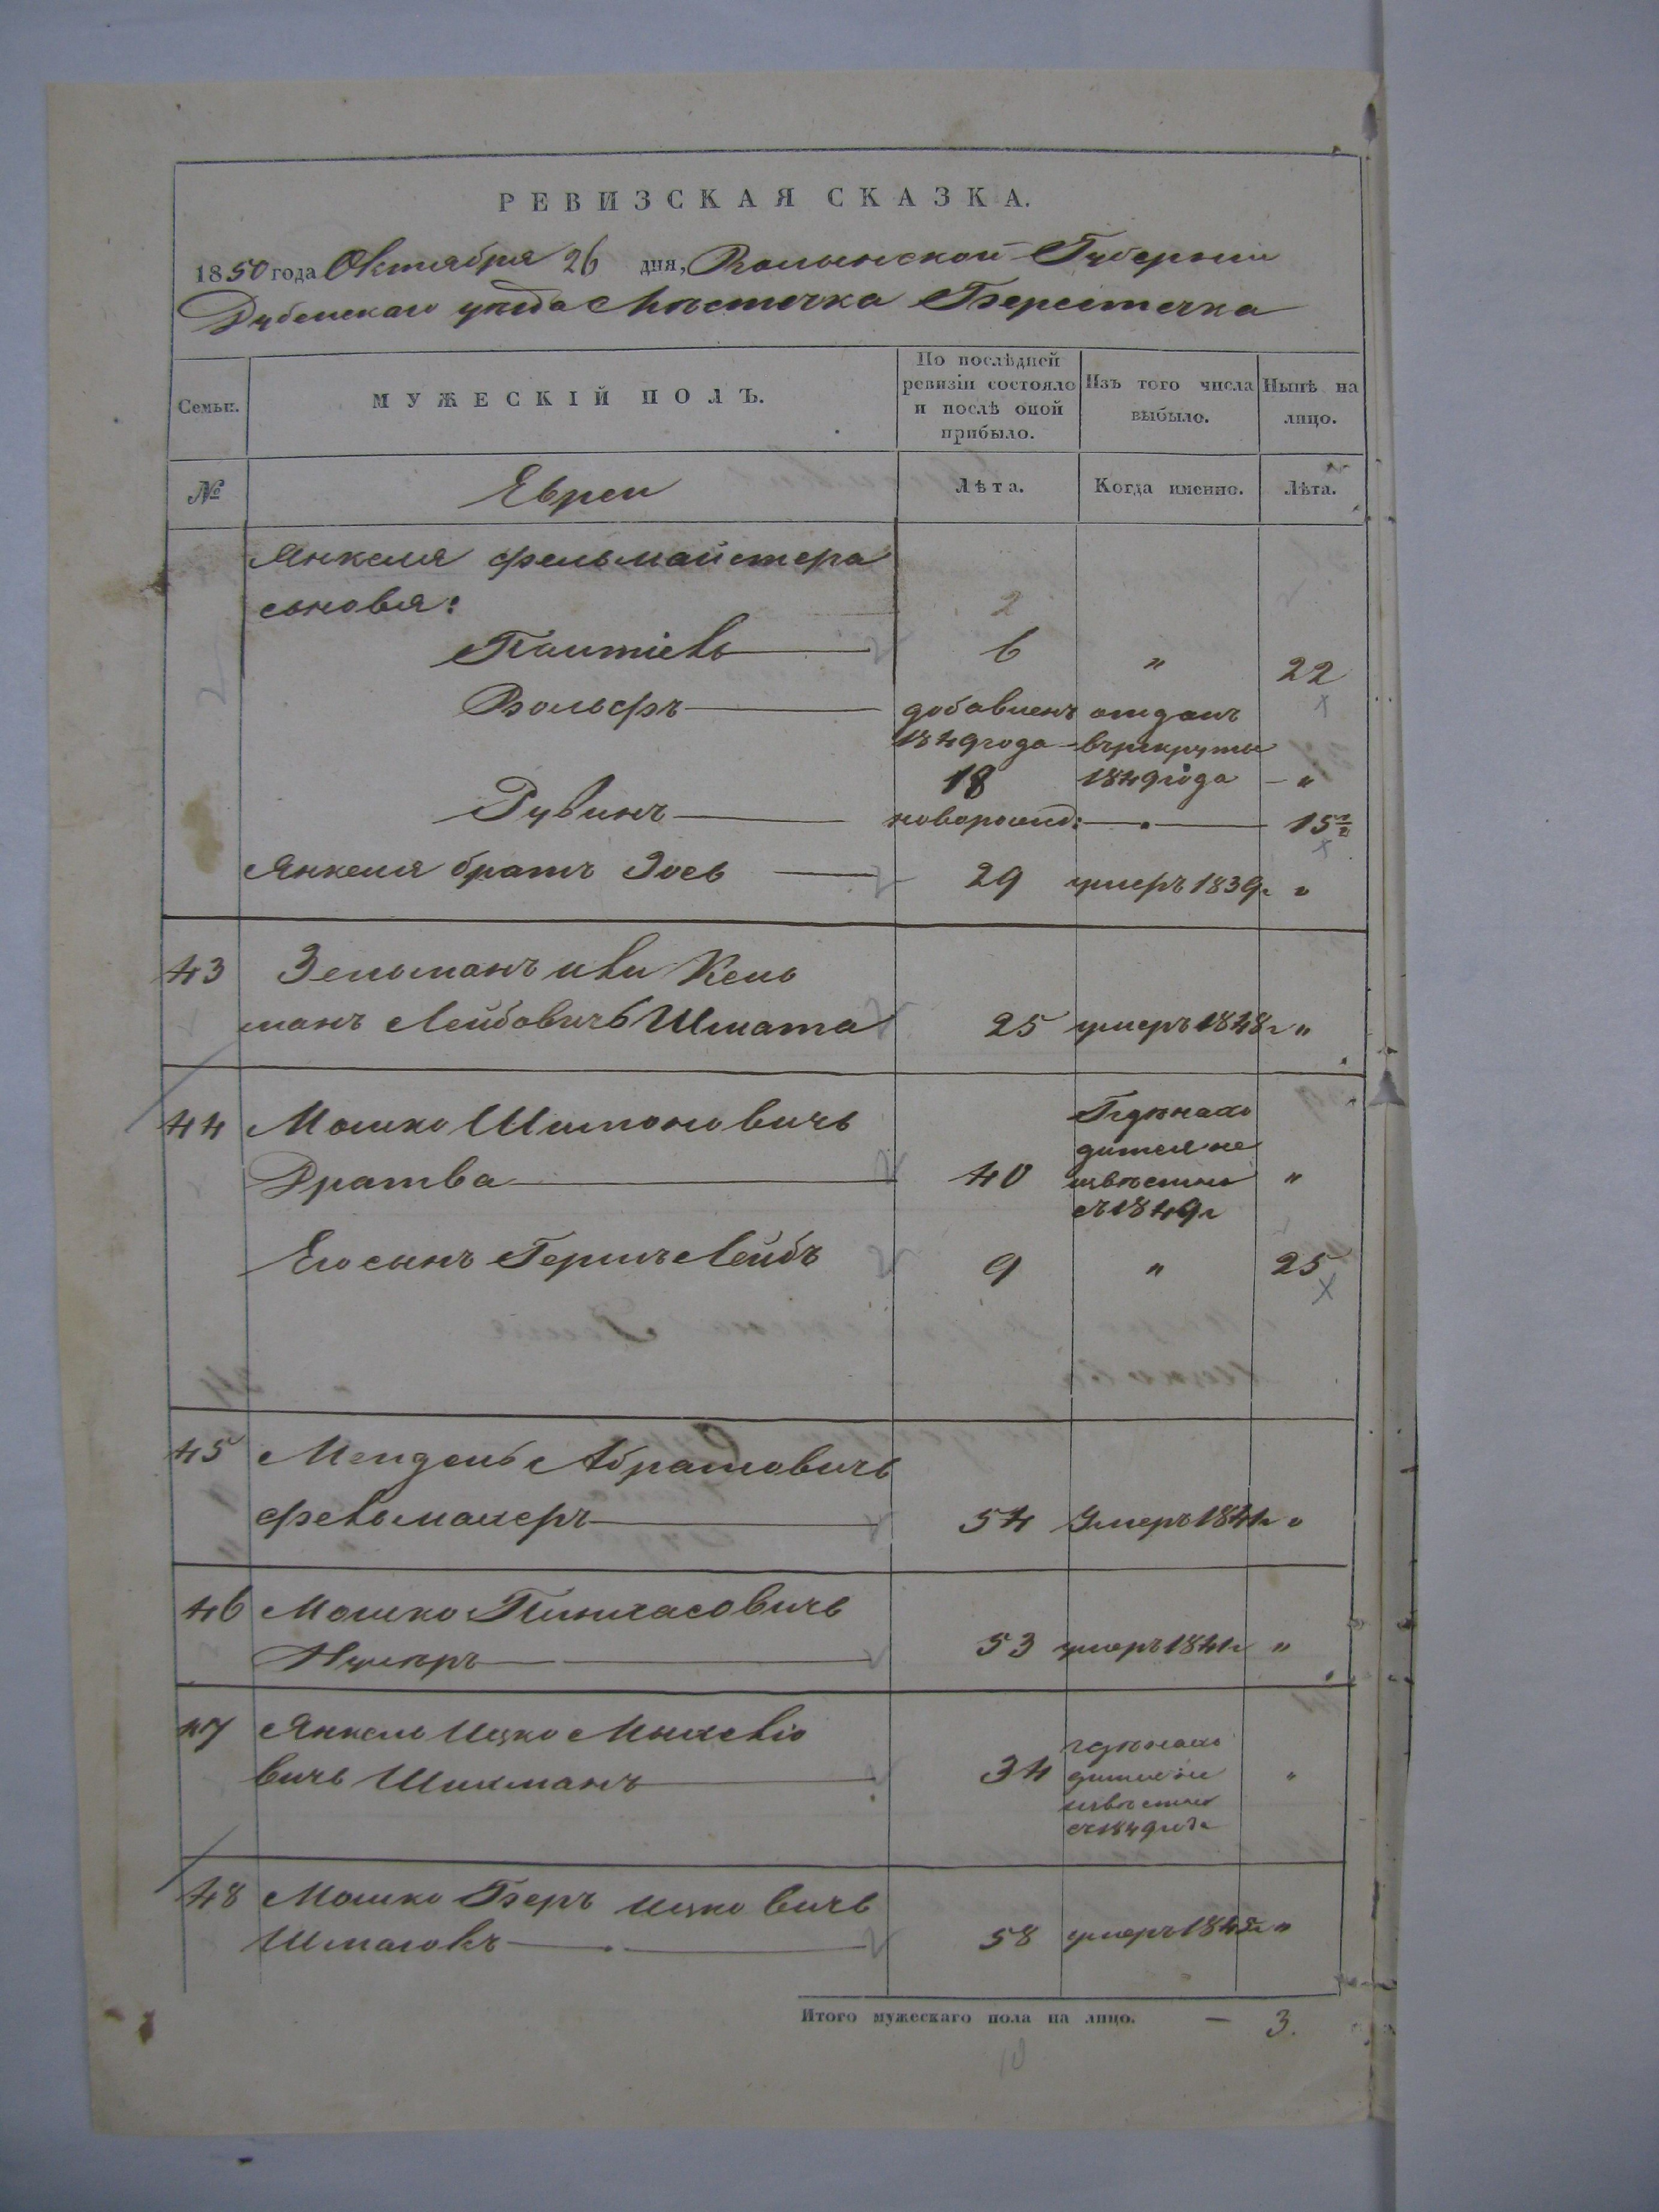 РЕВИЗСКАЯ СКАЗКА.
1850 года Октября 26 дня, Волынской Губернии
Дубенскаго уезда Местечка Берестечка
Семьи.
МУЖЕСКІЙ ПОЛЪ.
По послѣдней ревизіи состояло и послѣ оной прибыло.
Изъ того числа выбыло.
Нынѣ на лицо.
№
Евреи
Лѣта.
Когда именно.
Лѣта.
Янкеля Фельмайстера
сыновья:
2
Палтіель 6 " 22
Вольфъ добавленъ отданъ
1849 года въ рекруты
18 1849 года - "
Рувинъ новорожд: 15 1/2
Янкеля братъ Іось 29 умеръ 1839г "
43 Зельманъ или Кель
манъ Лейбовичъ Шмата 25 умеръ 1848г "
44 Мошко Шимоновичъ Где нахо
Дратва 40 дится не
известно "
съ 1849г
Его сынъ Гершъ Лейбъ 9 " 25
45 Мендель Абрамовичъ
Фельмахеръ 54 Умеръ 1841г "
46 Мошко Пинхасовичъ
53 умеръ 1841г "
47 Янкель Ицко где нахо
вичъ Шихманъ 34 дится не "
известно
съ 1849 года
48 Мошко Беръ Ицковичъ
58 умеръ "
Итого мужескаго пола на лицо. — 3.
10